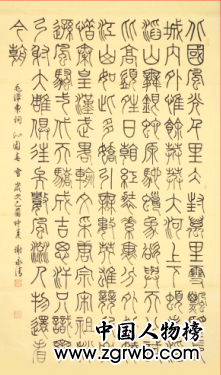 北國風光千里冰封萬里雪飄望長
城内外惟餘莽莽大河上下頓失滔
滔山舞銀蛇原馳蠟象欲與天公試比
高須晴日看紅裝素裹分外妖嬈
江山如此多嬌引無數英雄競折腰
惜秦皇漢武略輸文采唐宗宋祖稍
遜風騷一代天驕成吉思汗只識彎
弓射大雕俱往矣數風流人物還看
今朝
毛澤東詞 沁園春 雪 歲次 仲夏
中国人物榜
www.zgrwb.com